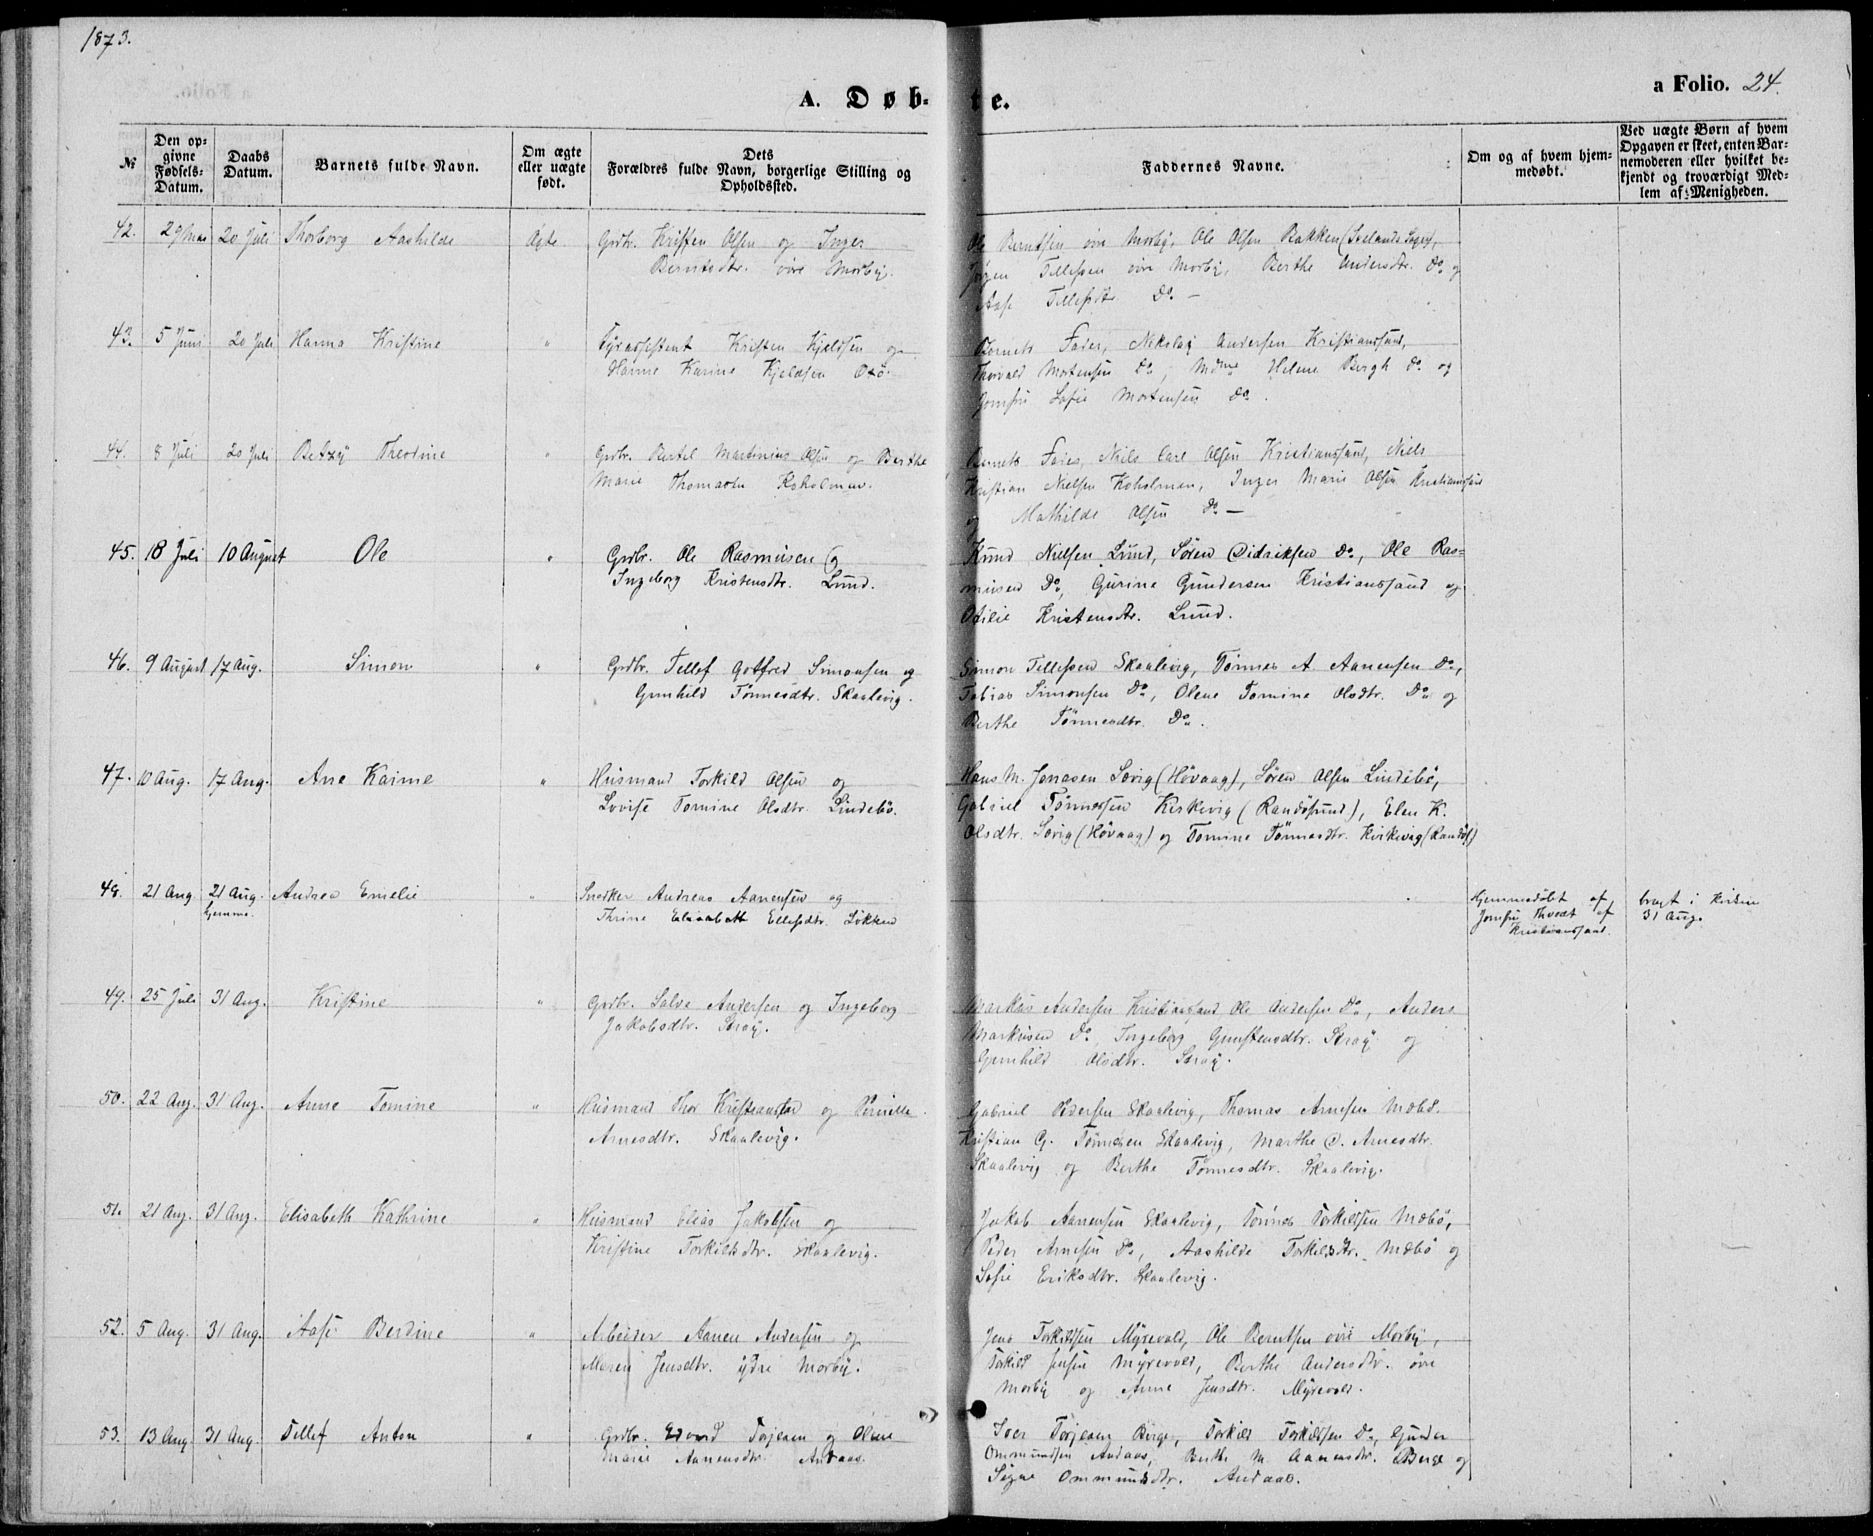 1873.
a Folio. 24.
A. Døb-te.
№
Den opgivne Fødsels-Datum.
Daabs Datum.
Barnets fulde Navn.
Om ægte eller uægte født.
Dets Forældres fulde Navn, borgerlige Stilling og Opholdssted.
Faddernes Navne.
Om og af hvem hjemmedøbt.
Ved uægte Børn af hvem Opgaven er skeet, enten Barnemoderen eller hvilket bekjendt og troværdigt Medlem af Menigheden.
42. 29 Mai 20 Juli Thorborg Aashilde Ægte Grdbr. Kristen Olsen og Inger
Berntsdtr. øvre Morby.
Ole Berntsen øvre Morby, Ole Olsen Bakken
Jørgen Tellefsen øvre Morby, Berthe Andersdtr. Do og
Aase Tellefsdtr Do. —
43. 5 Juni 20 Juli Hanna Kristine " Fyrassistent Kristen Kjeldsen og
Hanne Karine Kjeldsen Oxø.
Barnets Fader, Nikolay Andersen Kristianssand,
Thorvald Mortensen Do, Mdme Helene Bergh Do og
Jomfru Sofie Mortensen Do.
44. 8 Juli 20 Juli Betzy Theodine " Grdbr. Bertel Martinius Olsen og Berthe
Marie Thomasdtr Koholmen.
Barnets Fader, Nils Carl Olsen Kristianssand, Niels
Kristian Nielsen Koholmen, Inger Marie Olsen Kristianssand
og Mathilde Olsen Do —
45. 18 Juli 10 August Ole " Grdbr. Ole Rasmusen og
Ingeborg Kristensdtr. Lund.
Knud Nielsen Lund, Søren Didriksen Do, Ole Ras=
musen Do, Gurine Gundersen Kristianssand og
Otilie Kristensdtr. Lund.
46. 9 August 17 Aug. Simon " Grdbr. Tellef Gotfred Simonsen og
Gunhild Tønnesdtr. Skaalevig.
Simon Tellefsen Skaalevig, Tønnes A. Aanensen Do,
Tobias Simonsen Do, Olene Tomine Olsdtr. Do og
Berthe Tønnesdtr. Do.
47. 10 Aug. 17 Aug. Ane Kaime " Husmand Torkild Olsen og
Lovise Tomine Olsdtr. Lindebø.
Hans M. Jonasen Sævig (Høvaag), Søren Olsen Lindebø,
Gabriel Tønnessen Kirkevig (Randøsund), Elen K.
Olsdtr. Sævig (Høvaag) og Tomine Tønnesdtr. Kirkevig (Randøs)
48. 21 Aug. 21 Aug. Andrea Emelie " Snedker Andreas Aanensen og
hjemme.
Thrine Elisabeth Ellefsdtr. Løkken
Hjemmedøbt af
Jomfru Thvedt af
Kristianssand.
bragt i Kirken
31 Aug.
49. 25 Juli 31 Aug. Kristine " Grdbr. Salve Andersen og Ingeborg
Jakobsdtr. Strøy.
Markus Andersen Kristianssand Ole Andersen Do, Anders
Markusen Do, Ingeborg Gunstensdtr. Strøy og
Gunhild Olsdtr. Strøy.
50. 22 Aug. 31 Aug. Anne Tomine " Husmand Thor Kristiansen og Pernille
Arnesdtr. Skaalevig.
Gabriel Pedersen Skaalevig, Thomas Arnesen Mæbø.
Kristian G. Tønnesen Skaalevig, Marthe O. Arnesdtr.
Skaalevig og Berthe Tønnesdtr. Skaalevig.
51. 21 Aug. 31 Aug. Elisabeth Kathrine " Husmand Elias Jakobsen og
Kristine Torkildsdtr. Skaalevig.
Jakob Aanensen Skaalevig, Tønnes Torkildsen Mæbø,
Peder Arnesen Do, Aashilde Torkildsdtr. Mæbø og
Sofie Eriksdtr. Skaalevig.
52. 5 Aug. 31 Aug. Aase Berdine " Arbeider Aanen Andersen og
Maren Jensdtr. ydre Morby.
Jens Torkildsen Myrevold, Ole Berntsen øvre Morby,
Torkild Jensen Myrevold, Berthe Andersdtr. øvre
Morby og Anne Jensdtr. Myrevold.
53. 13 Aug 31 Aug. Tellef Anton " Grdbr. Edvard Terjesen og Olene
Marie Aanensdtr. Andaas.
Iver Terjesen Berge, Torkild Torkildsen Do, Gunder
Ommundsen Andaas, Berthe M Aanensdtr. Berge og
Signe Ommundsdtr. Andaas.